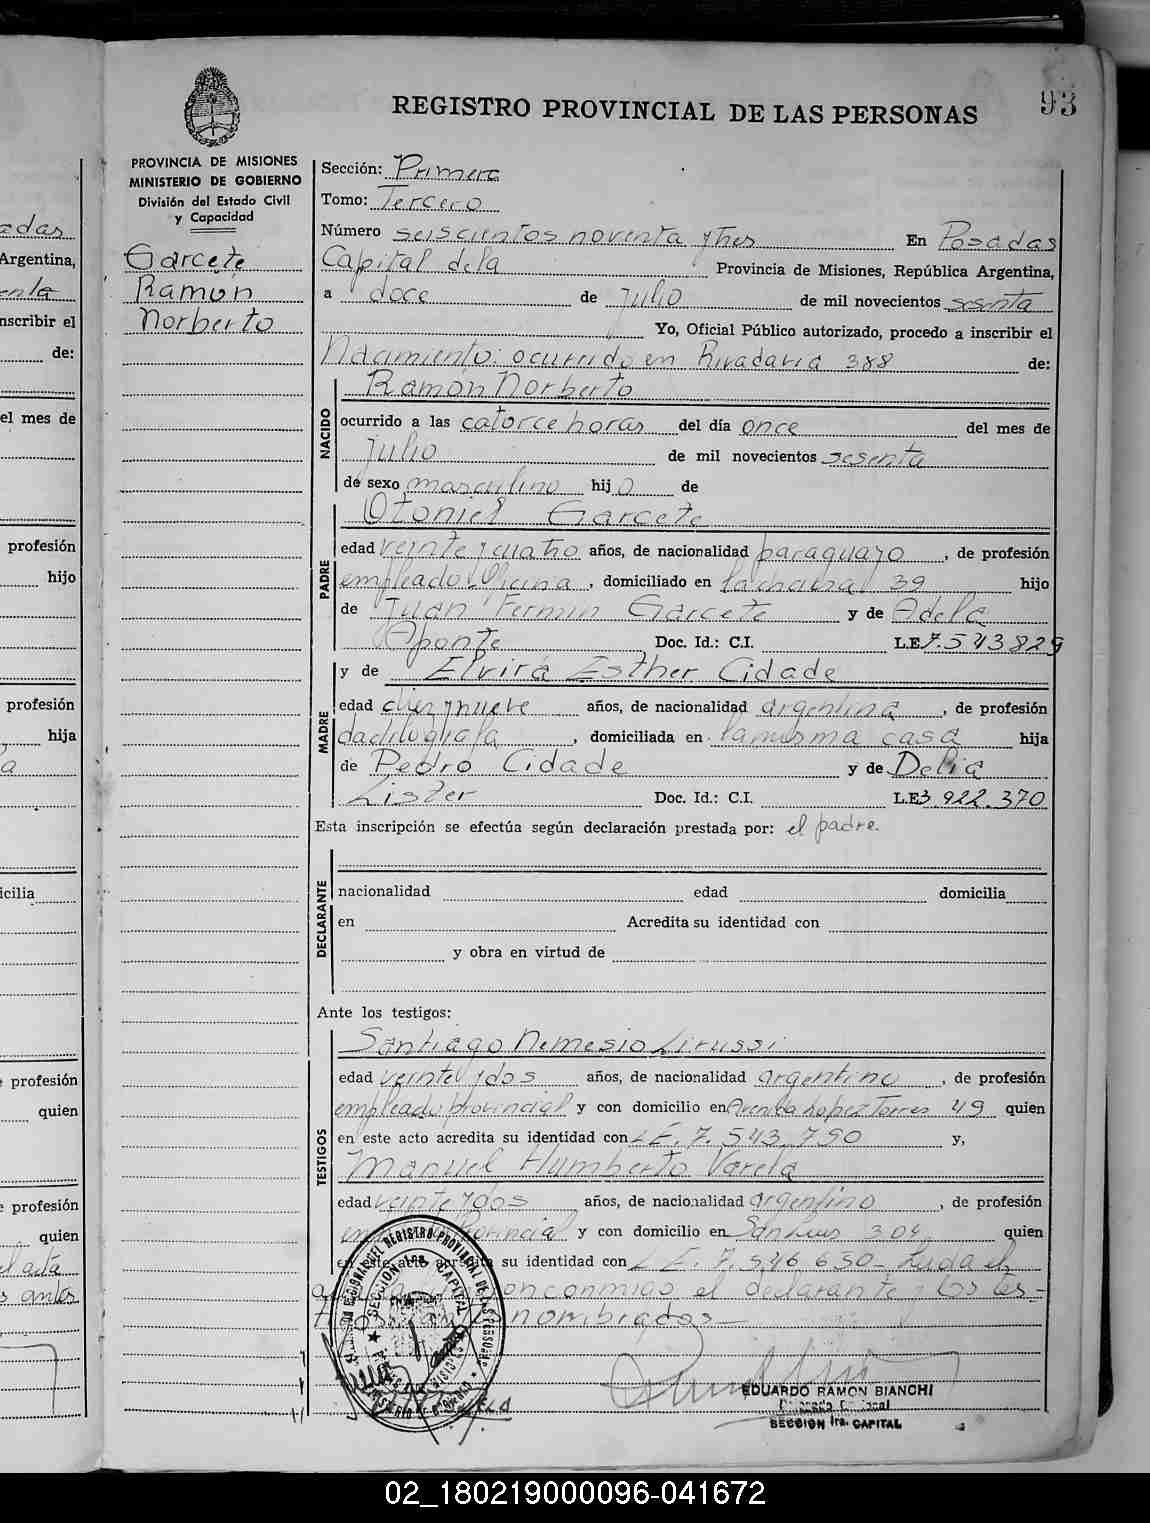 93
REGISTRO PROVINCIAL DE LAS PERSONAS
PROVINCIA DE MISIONES
MINISTERIO DE GOBIERNO
División del Estado Civil
y Capacidad
Garcete
Ramón
Norberto
Sección: Primera
Tomo: Tercero
Número seiscientos noventa y tres En Posadas
Capital de la Provincia de Misiones, República Argentina,
a doce de julio de mil novecientos sesenta
Yo, Oficial Público autorizado, procedo a inscribir el
Nacimiento: ocurrido en Rivadavia 388 de:
Ramón Norberto
NACIDO
ocurrido a las catorce horas del día once del mes de
julio de mil novecientos sesenta
de sexo masculino hijo de
Otoniel Garcete
PADRE
edad veinte y cuatro años, de nacionalidad paraguayo, de profesión
empleado Oficina, domiciliado en 39 hijo
de Juan Fermin Garcete y de Adela
Aponte Doc. Id.: C.I. L.E 7.543829
y de Elvira Esther Cidade
MADRE
edad diez y nueve años, de nacionalidad argentina, de profesión
dactilografa, domiciliada en la misma casa hija
de Pedro Cidade y de Delia
Lister Doc. Id.: C.I. L.E 3.922.370
Esta inscripción se efectúa según declaración prestada por: el padre.
DECLARANTE
nacionalidad edad domicilia
en Acredita su identidad con
y obra en virtud de
Ante los testigos:
TESTIGOS
Santiago Nemesio Lirussi
edad veinte y dos años, de nacionalidad argentino, de profesión
empleado provincial y con domicilio en Avenida Lopez Torres 49 quien
en este acto acredita su identidad con L.E. 7.543.790 y,
Manuel Humberto Varela
edad veinte y dos años, de nacionalidad argentino, de profesión
provincial y con domicilio en San Luis 304 quien
en este acto acredita su identidad con L.E. 7.546.650 - Leida el
con conmigo el declarante los tes-
nombrados-
SECCION 1ra. CAPITAL
EDUARDO RAMON BIANCHI
SECCION 1ra. CAPITAL
adas
Argentina,
enta
nscribir el
de:
el mes de
profesión
hijo
profesión
hija
a
icilia
profesión
quien
profesión
quien
el acta
s antes
02_180219000096-041672